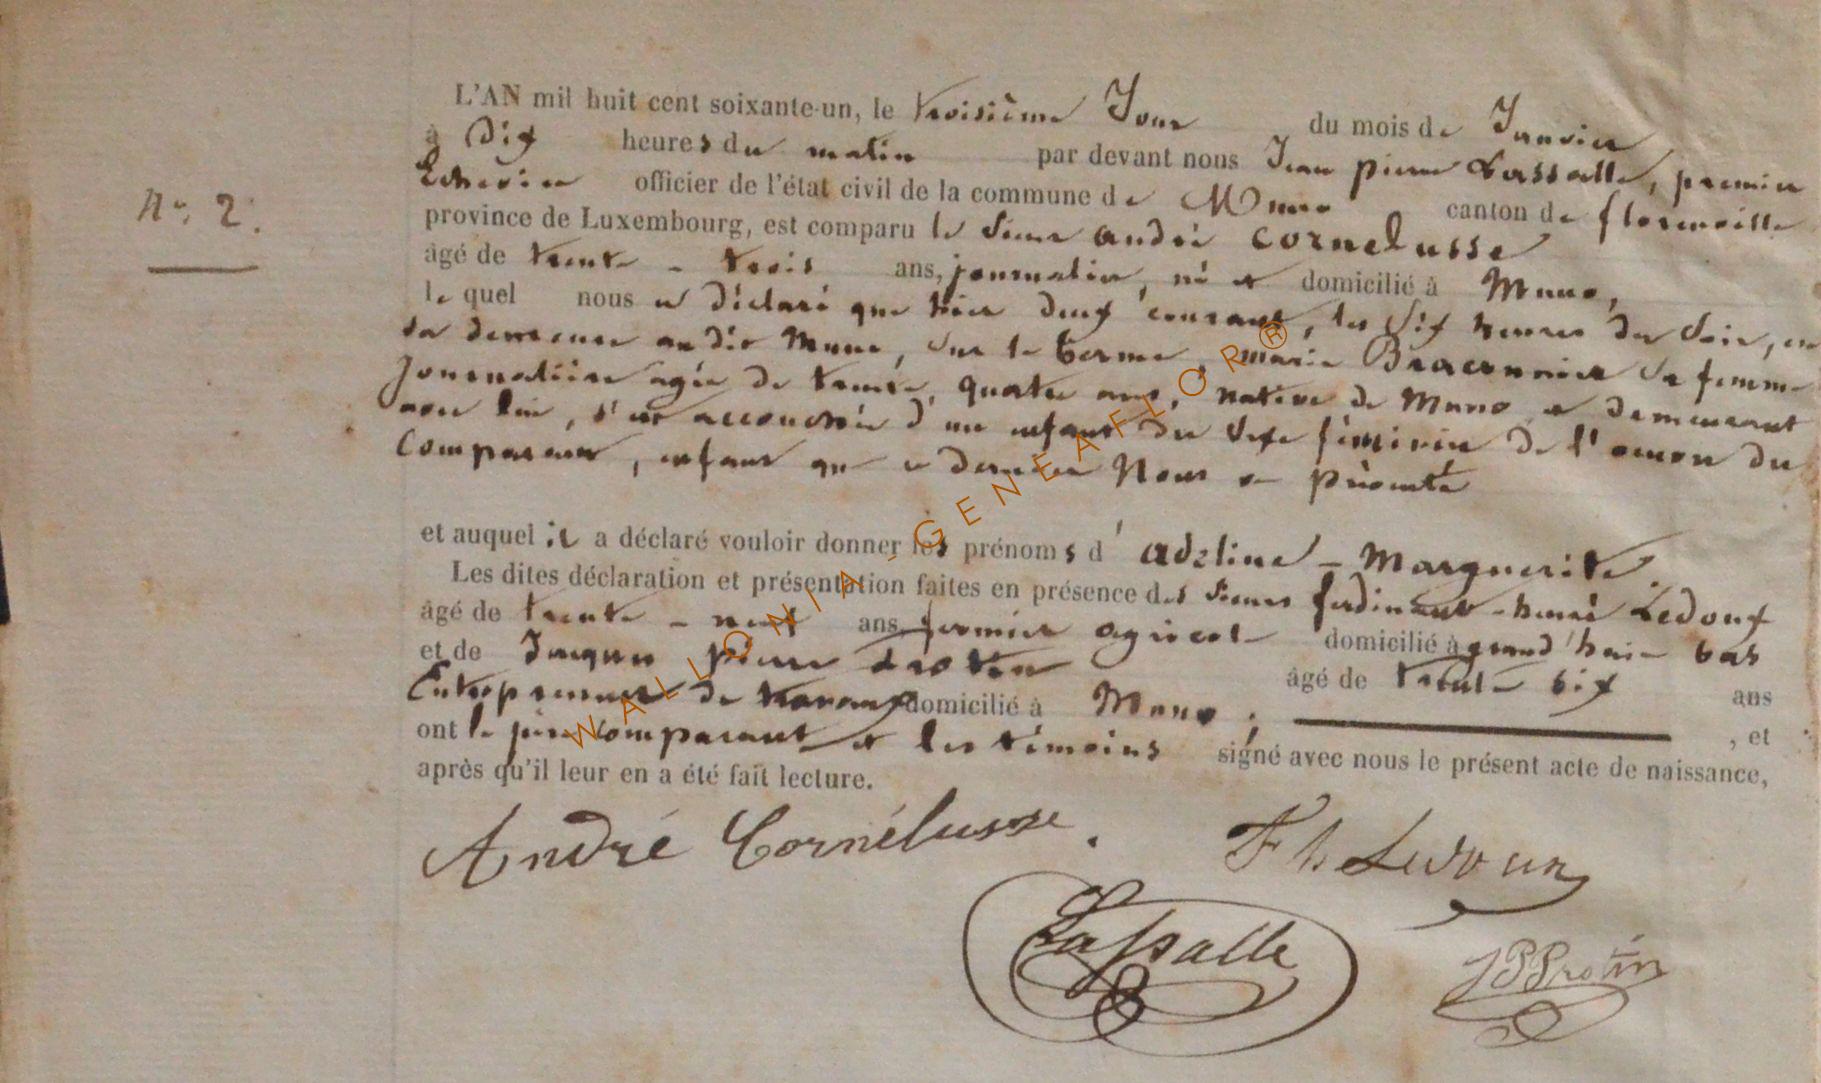 L'AN mil huit cent soixante-un, le troisième Jour du mois de Janvier
à Dix heures du matin par devant nous Jean pierre Lassalle, premier
Echevin officier de l'état civil de la commune de Muno canton de florenville
N° 2.
province de Luxembourg, est comparu le Sieur andré cornelusse
âgé de trente - trois ans, journalier, né et domicilié à Muno,
le quel nous a Déclaré que hier deux courant, les Six heures du Soir, en
sa demeure au dit Muno, sur le terme, marie Braconnier sa femme
Journalière agée de trente, quatre ans, native de Muno et demeurant
avec lui, s'est accouchée d'un enfant du Sexe féminin De l'union du
Comparant, enfant que ce dernier Nous a présenté
et auquel il a déclaré vouloir donner les prénoms d'adeline - Marguerite.
Les dites déclaration et présentation faites en présence des Sieurs ferdinant - henri Ledoux
âgé de trente - neuf ans fermier agricole domicilié à grand'haie bas
et de Jacques pierre Protin âgé de trente Six ans
Entrepreneur de travaux domicilié à Muno ; , et
ont le père Comparant et les témoins signé avec nous le présent acte de naissance,
après qu'il leur en a été fait lecture.
André Cornélusse. F h Ledoux
Lassalle JPProtin
WALLONIA-GENEAFLOR®